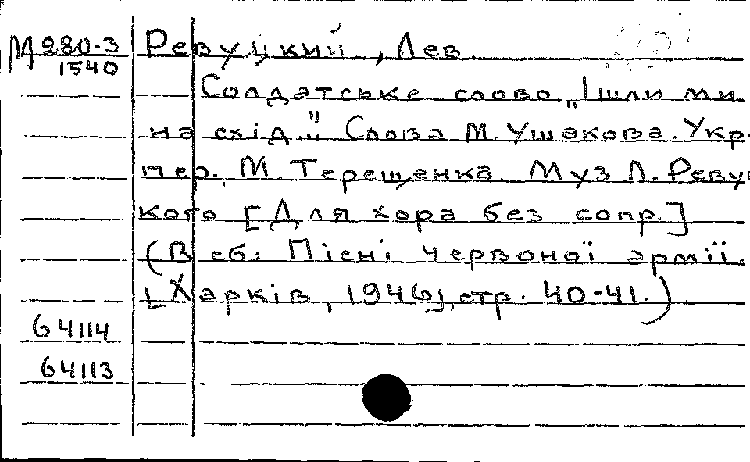 М 280-3 Ревуцкий, Лев
1540
Солдатське слово „Ішли ми
на схід." Слова М. Ушакова. Укр.
пер. М. Терещенка Муз Л. Реву
кого [Для хора без сопр.]
(В сб: Пісні Червоної армії.
[Харків, 1946], стр. 40-41.)
64114
64113